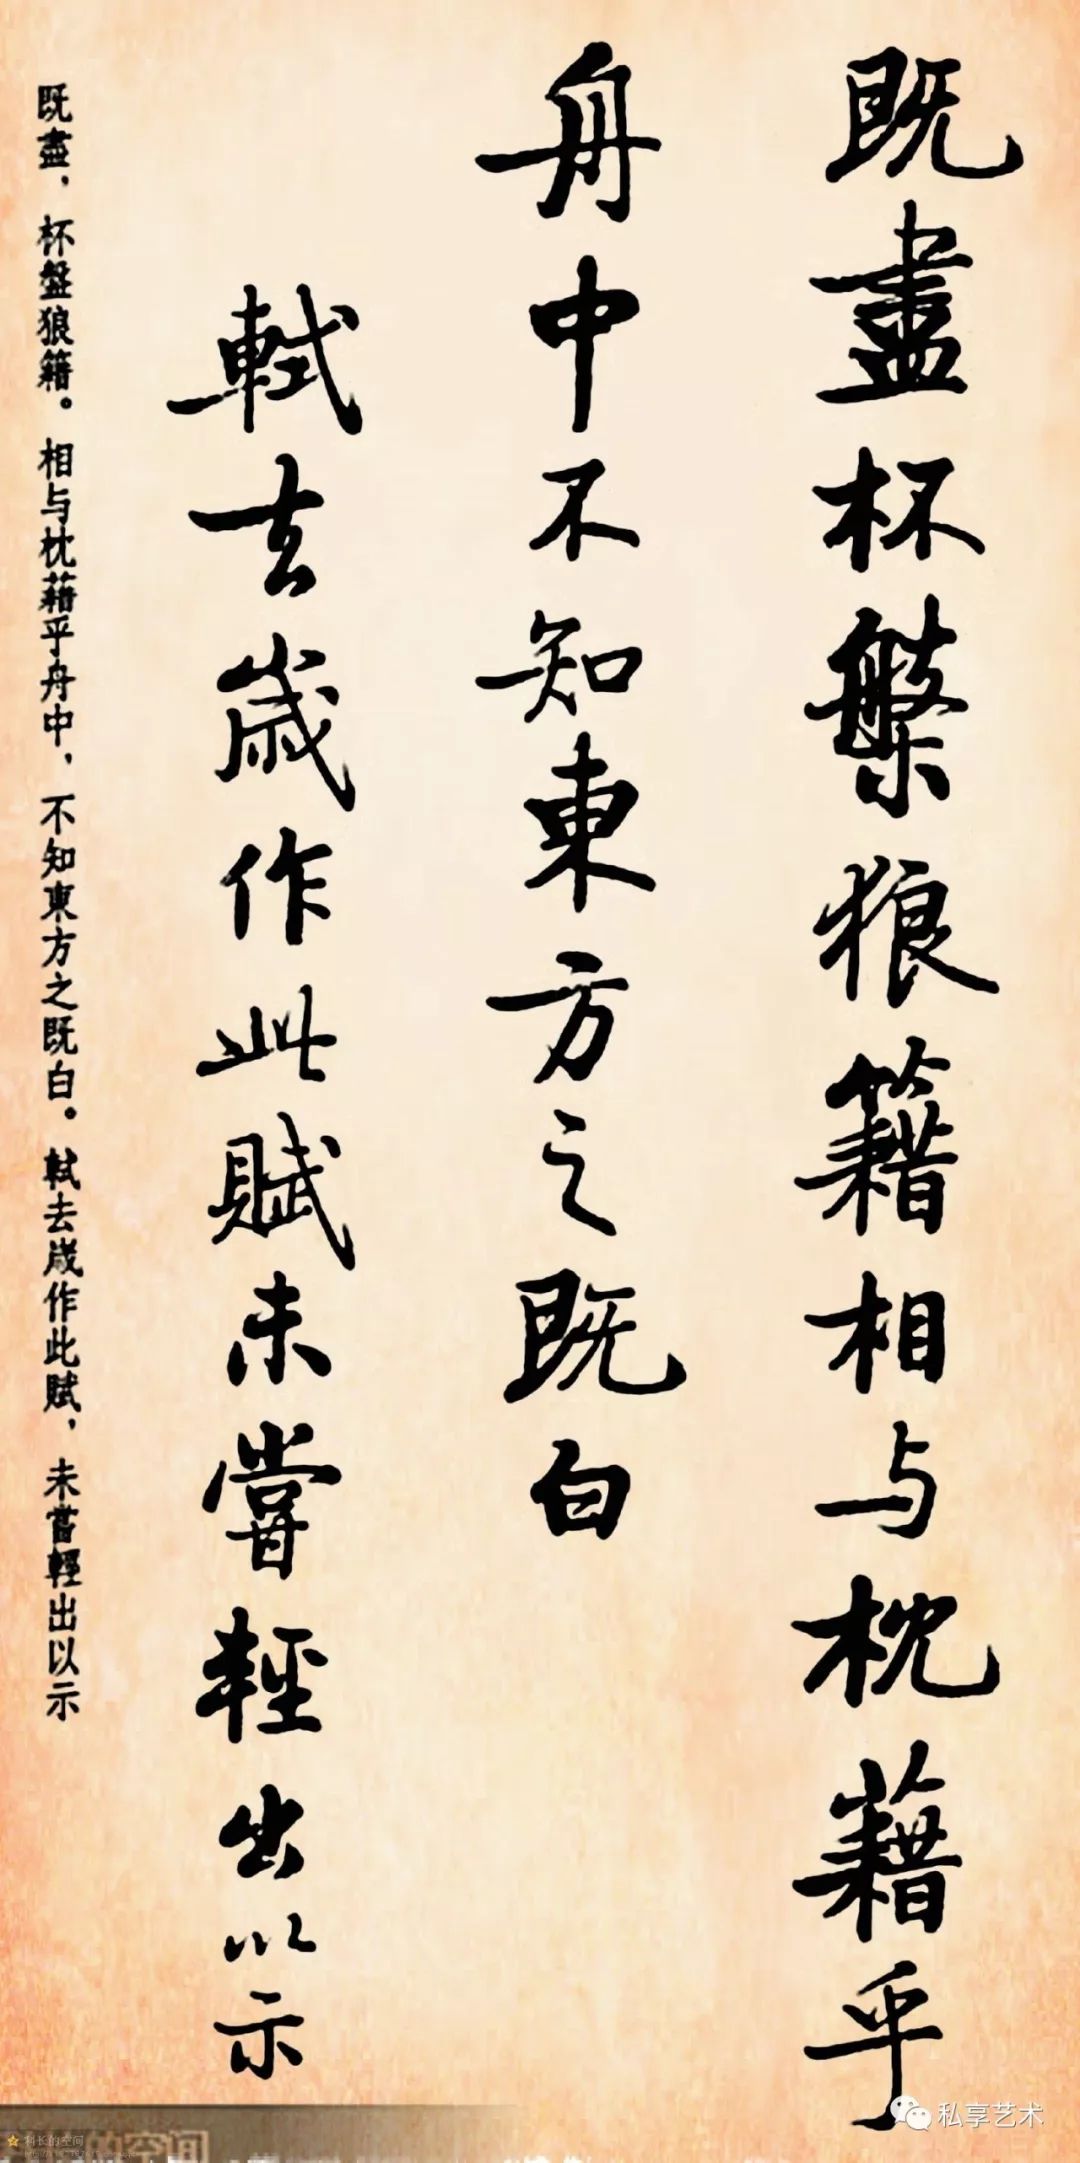 既盡杯槃狼籍相与枕藉乎
舟中不知東方之既白
軾去歲作此賦未嘗輕出以示
既盡，杯盤狼籍。相与枕藉乎舟中，不知東方之既白。軾去歲作此賦，未嘗輕出以示
私享艺术
科长的空间